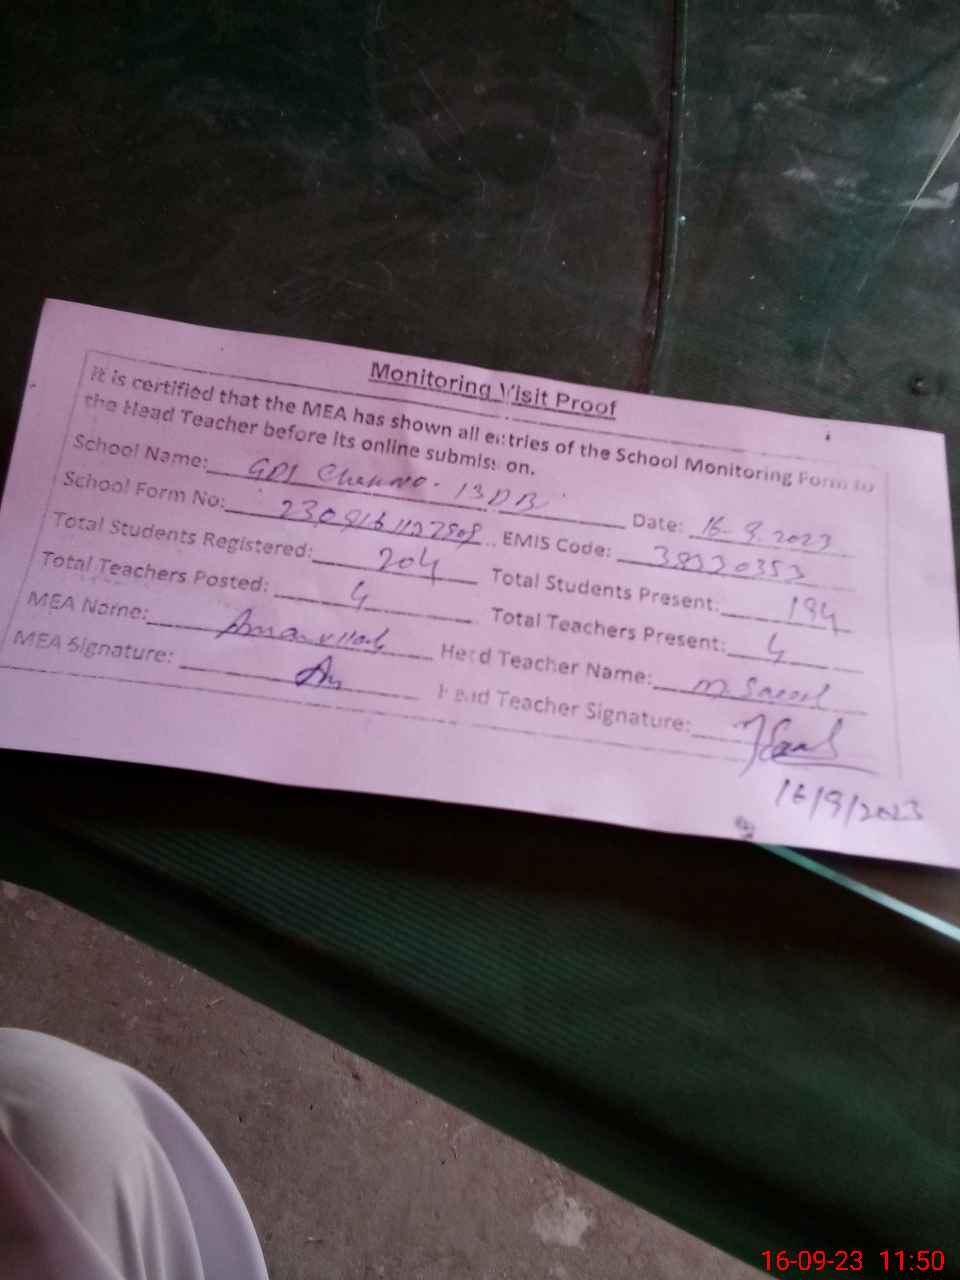 Monitoring Visit Proof
It is certified that the MEA has shown all entries of the School Monitoring Form to
the Head Teacher before its online submission.
School Name: GPS 13 DB Date: 16-9-2023
School Form No: EMIS Code: 38320353
Total Students Registered: 204 Total Students Present: 194
Total Teachers Posted: 4 Total Teachers Present: 4
MEA Name: Head Teacher Name: M Saeed
MEA Signature: Head Teacher Signature:
16/9/2023
16-09-23 11:50